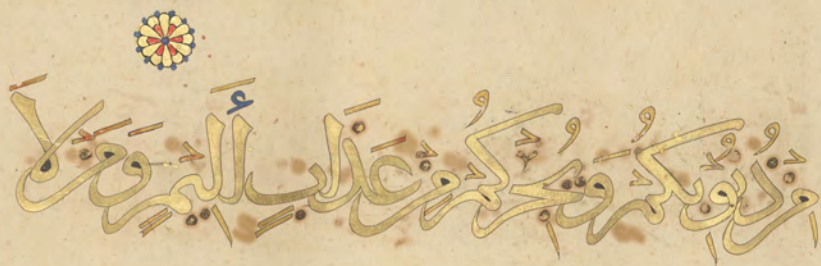 مِّن ذُنُوبِكُمْ وَيُجِرْكُم مِّنْ عَذَابٍ أَلِيمٍ وَمَن لَّا